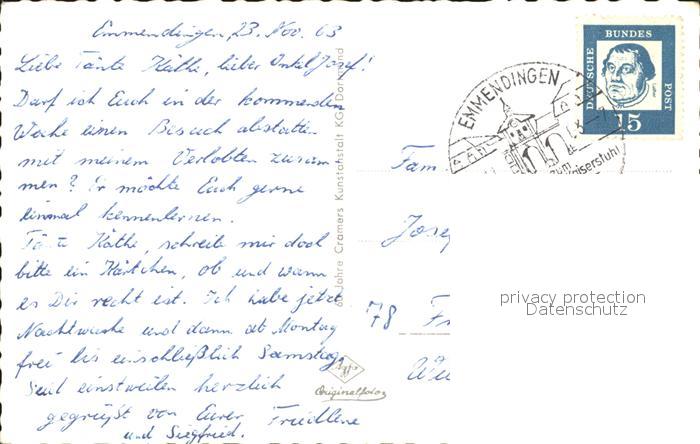 Emmendingen, 23. Nov. 63
Liebe Tante Käthe, lieber Onkel Josef!
Darf ich Euch in der kommenden
Woche einen Besuch abstatten
mit meinem Verlobten zusam-
men? Er möchte Euch gerne
einmal kennenlernen.
Tante Käthe, schreibe mir doch
bitte ein Kärtchen, ob und wann
es Dir recht ist. Ich habe jetzt
Nachtwache und dann ab Montag
frei bis einschließlich Samstag.
Seid einstweilen herzlich
gegrüßt von Eurer Friedlene
und Siegfried.
Jahre Cramers Kunstanstalt KG Dortmund
Agfa
Originalfoto
DEUTSCHE
BUNDES
POST
15
EMMENDINGEN
zum
Kaiserstuhl
Fam.
Jose
78 Fr
privacy protection
Datenschutz